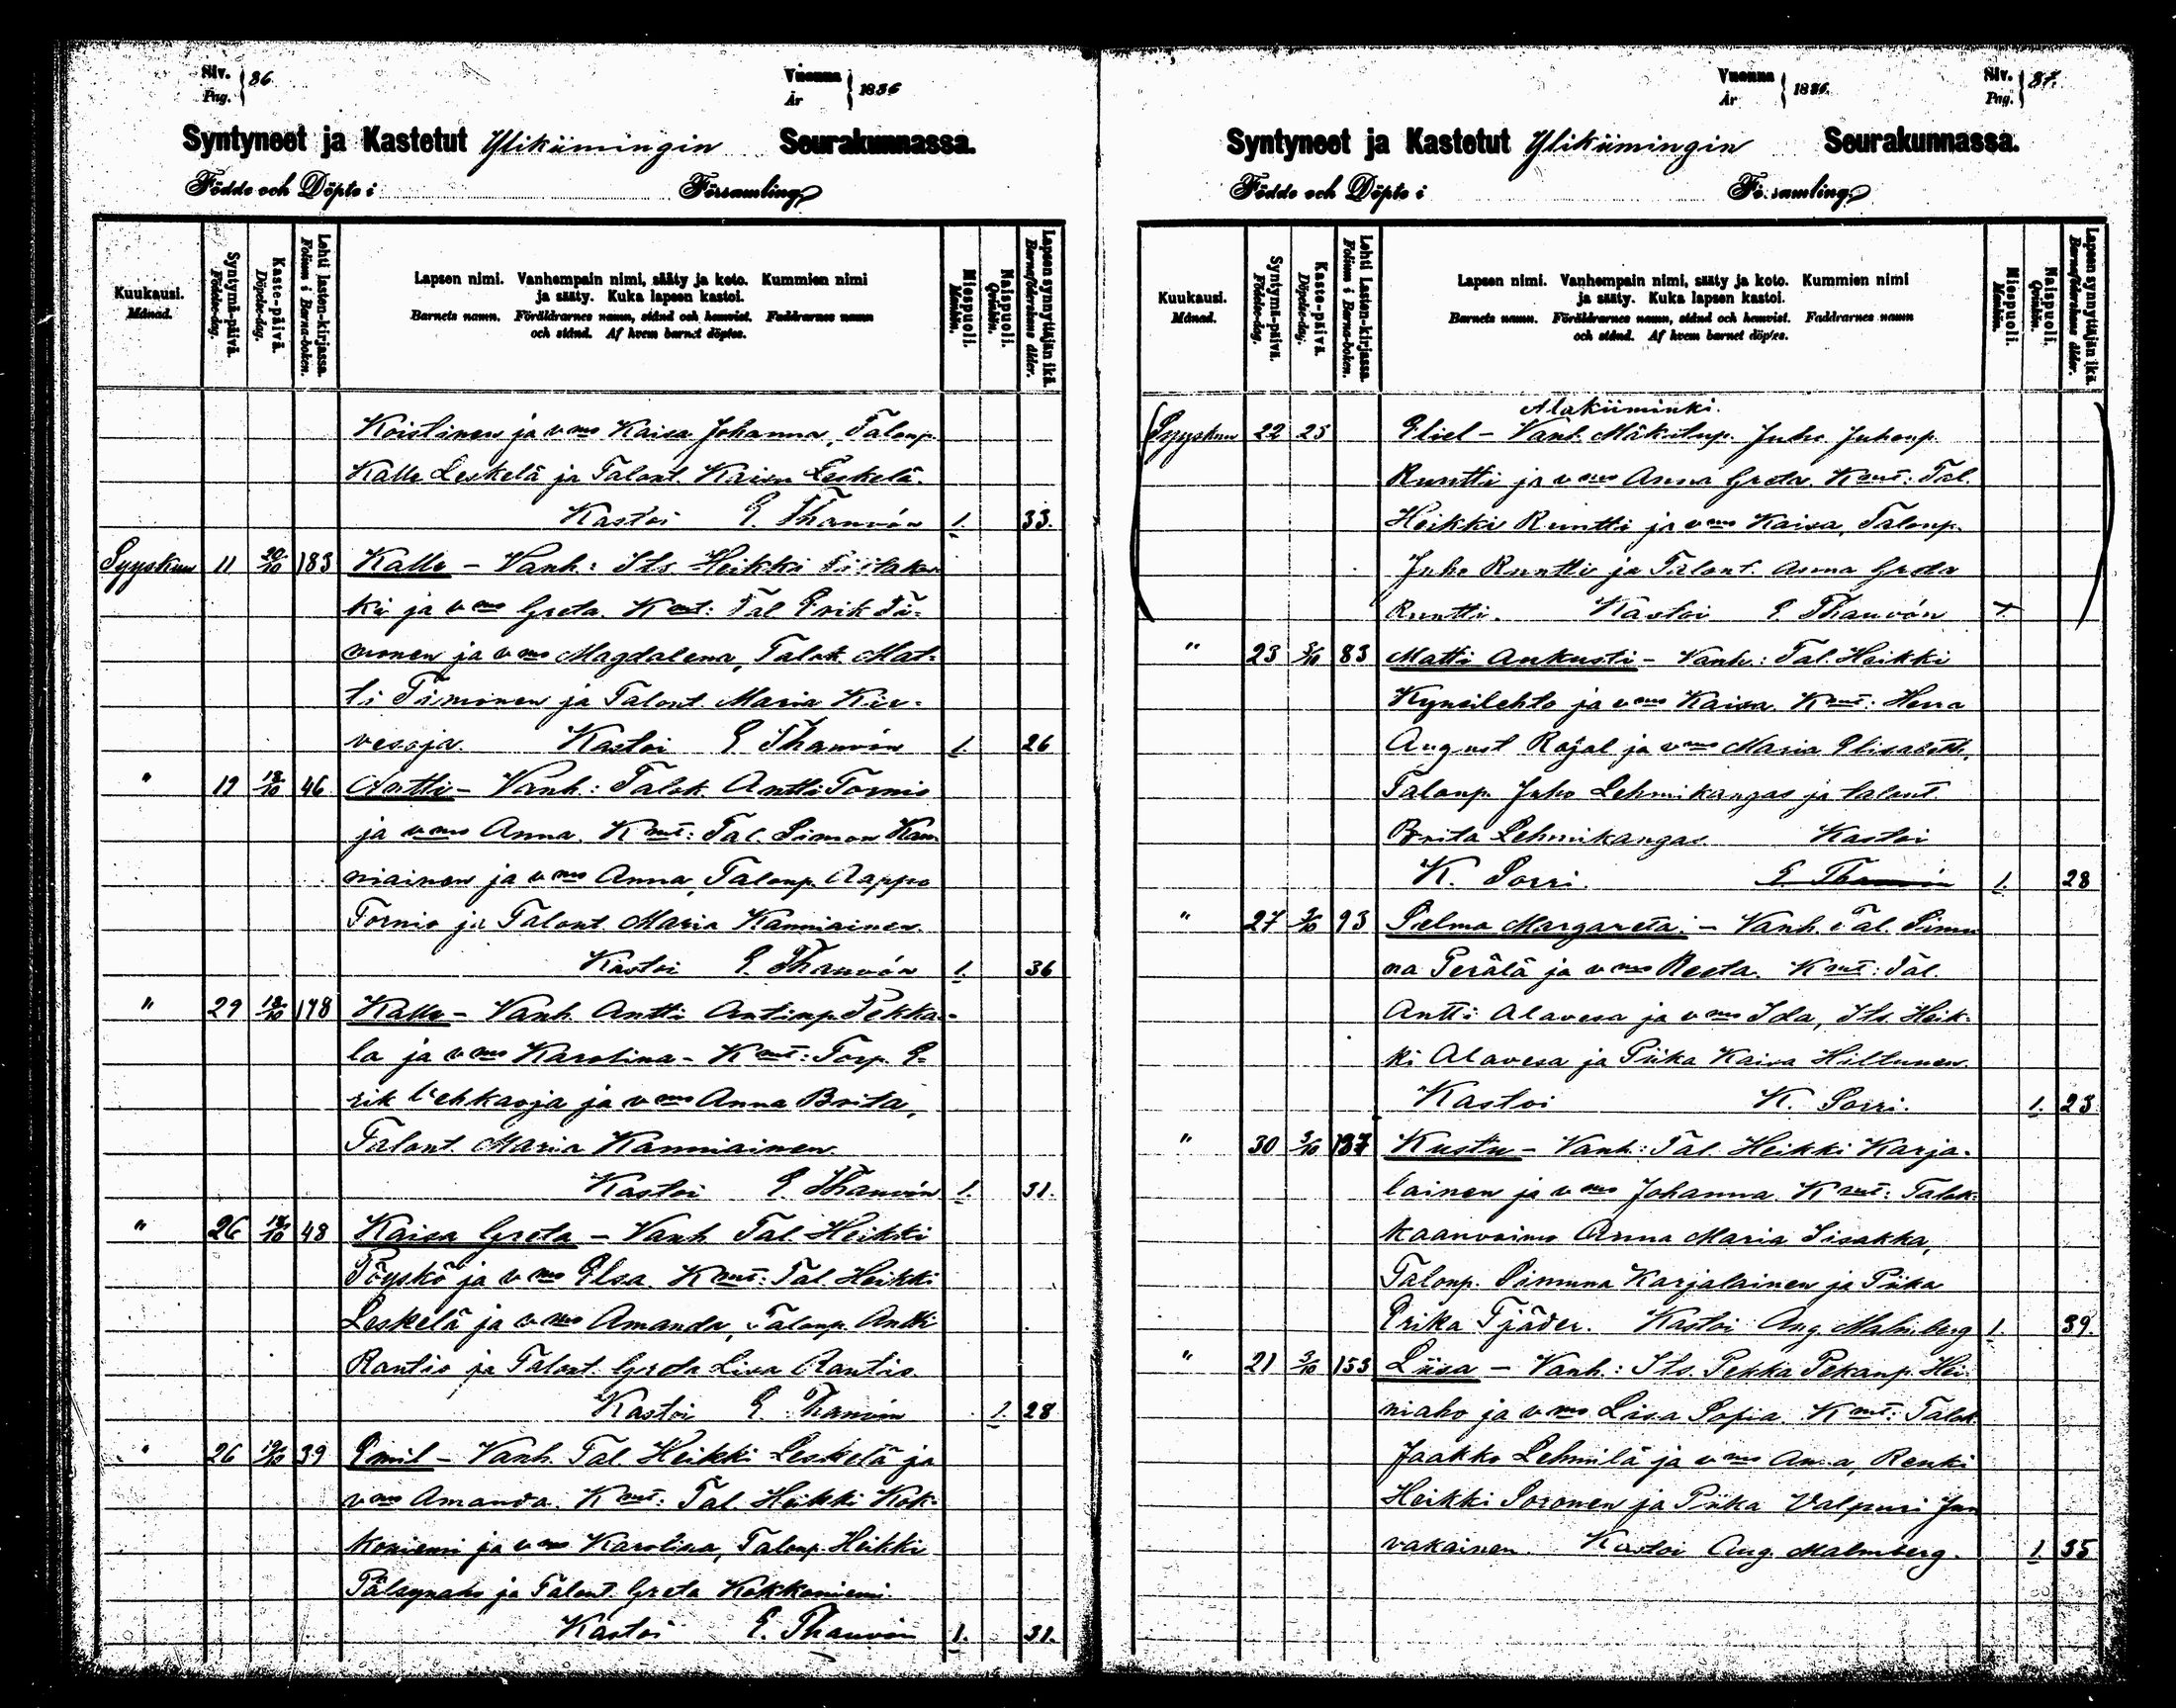 Siv. 86
Pag.
Vuonna 1886
År
Syntyneet ja Kastetut Ylikiimingin Seurakunnassa.
Födde och Döpte i Församling
Kuukausi.
Månad.
Syntymä-päivä.
Födelse-dag.
Kaste-päivä.
Döpelse-dag.
Lehti lasten-kirjassa.
Folium i Barna-boken.
Lapsen nimi. Vanhempain nimi, sääty ja koto. Kummien nimi
ja sääty. Kuka lapsen kastoi.
Barnets namn. Föräldrarnes namn, stånd och hemvist. Faddrarnes namn
och stånd. Af hvem barnet döptes.
Miespuoli.
Mankön.
Naispuoli.
Qvinkön.
Lapsen synnyttäjän ikä.
Barnaföderskans ålder.
Koistinen ja vmo Kaisa Johanna, Talonp.
Kalle Leskelä ja Talont. Kaisa Leskelä.
Kastoi E. Thauvón 1. 33.
Syyskuu 11 20/10 183 Kalle - Vanh: Its. Heikki
ki ja vmo Greta. Kmit: Tal Erik Ti-
monen ja vmo Magdalena, Talok. Mat-
ti Timonen ja Talont. Maria Kir-
vesoja. Kastoi E. Thauvón 1. 26
" 19 18/10 46 Antti - Vanh: Talok. Antti Tornio
ja vmo Anna. Kmit: Tal. Simon Kan-
niainen ja vmo Anna, Talonp. Aappo
Tornio ja Talont. Maria Kanniainen
Kastoi E. Thauvón 1. 36
" 29 18/10 178 Kalle - Vanh. Antti Antinp. Pekka-
la ja vmo Karolina - Kmit: Torp. E-
rik Vehkaoja ja vmo Anna Brita,
Talont. Maria Kanniainen
Kastoi E. Thauvón 1. 31.
" 26 18/10 48 Kaisa Greta - Vanh Tal Heikki
Töyskö ja vmo Elsa. Kmit: Tal. Heikki
Leskelä ja vmo Amanda, Talonp. Antti
Rantio ja Talont. Greta Lisa Rantio.
Kastoi E. Thauvón 1. 28
" 26 39 Emil - Vanh. Tal Heikki Leskelä ja
vmo Amanda. Kmit: Tal. Heikki Kok-
koniemi ja vmo Karolina, Talonp. Heikki
ja Talont. Greta Kokkoniemi.
Kastoi E. Thauvón 1. 31.
Siv. 87.
Pag.
Vuonna 1886.
År
Syntyneet ja Kastetut Ylikiimingin Seurakunnassa.
Födde och Döpte i Församling
Kuukausi.
Månad.
Syntymä-päivä.
Födelse-dag.
Kaste-päivä.
Döpelse-dag.
Lehti Lasten-kirjassa.
Folium i Barna-boken.
Lapsen nimi. Vanhempain nimi, sääty ja koto. Kummien nimi
ja sääty. Kuka lapsen kastoi.
Barnets namn. Föräldrarnes namn, stånd och hemvist. Faddrarnes namn
och stånd. Af hvem barnet döptes.
Miespuoli.
Mankön.
Naispuoli.
Qvinkön.
Lapsen synnyttäjän ikä.
Barnaföderskans ålder.
Alakiiminki.
Syyskuu 22 25 Eliel - Vanh. Mäkitup. Juho Juhonp.
Runtti ja vmo Anna Greta. Kmit: Tal.
Heikki Runtti ja vmo Kaisa, Talonp.
Juho Runtti ja Talont. Anna Greta
Runtti. Kastoi E. Thauvón 1.
" 23 3/10 83 Matti Aukusti - Vanh: Tal. Heikki
Kynsilehto ja vmo Kaisa. Kmit: Herra
August Rajal ja vmo Maria Elisabeth,
Talonp. Juho Lehmikangas ja talont.
Brita Lehmikangas Kastoi
K. Sorri. E. Thauvón 1. 28
" 27 3/10 93 Selma Margareta. - Vanh. Tal. Simu
na Perälä ja vmo Reeta. Kmit: Tal.
Antti Alavesa ja vmo Ida, Its. Heik-
ki Alavesa ja Piika Kaisa Hiltunen.
Kastoi K. Sorri. 1. 23
" 30 3/10 137 Kustu - Vanh: Tal. Heikki Karja-
lainen ja vmo Johanna. Kmit: Talok-
kaanvaimo Anna Maria Iisakka,
Talonp. Simuna Karjalainen ja Piika
Erika Tjäder. Kastoi Aug. Malmberg 1. 39.
" 21 3/10 153 Liisa - Vanh: Its. Pekka Pekanp. Hei-
niaho ja vmo Lisa Sofia. Kmit: Talok.
Jaakko Lehmilä ja vmo Anna, Renki
Heikki Soronen ja Piika Valpuri Jun
vakainen. Kastoi Aug. Malmberg. 1. 35